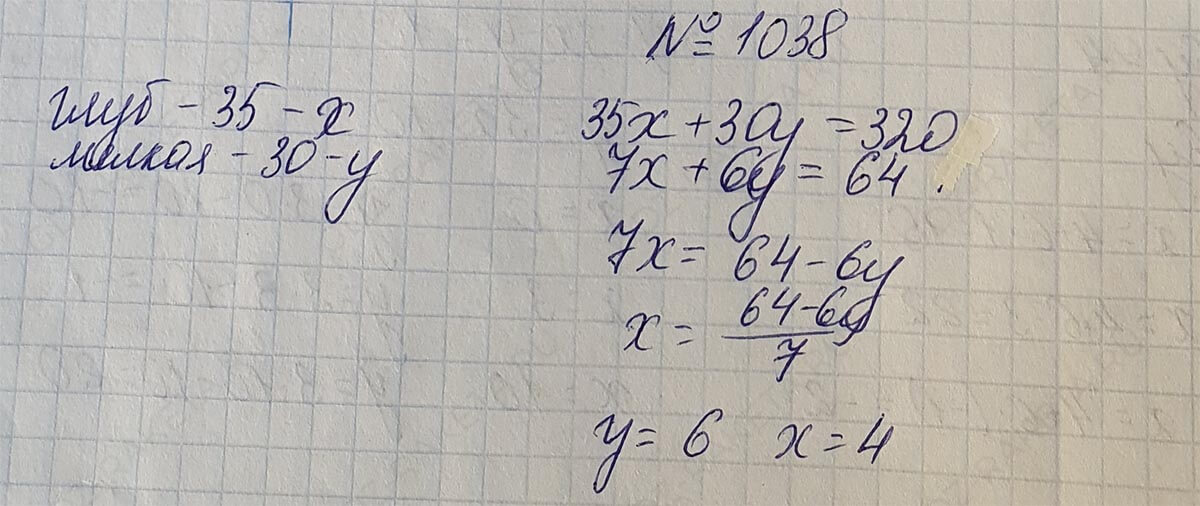 № 1038
глуб - 35 - x
мелкая - 30 - y
35x + 30y = 320
7x + 6y = 64.
7x = 64 - 6y
x = (64 - 6y)/7
y = 6 x = 4